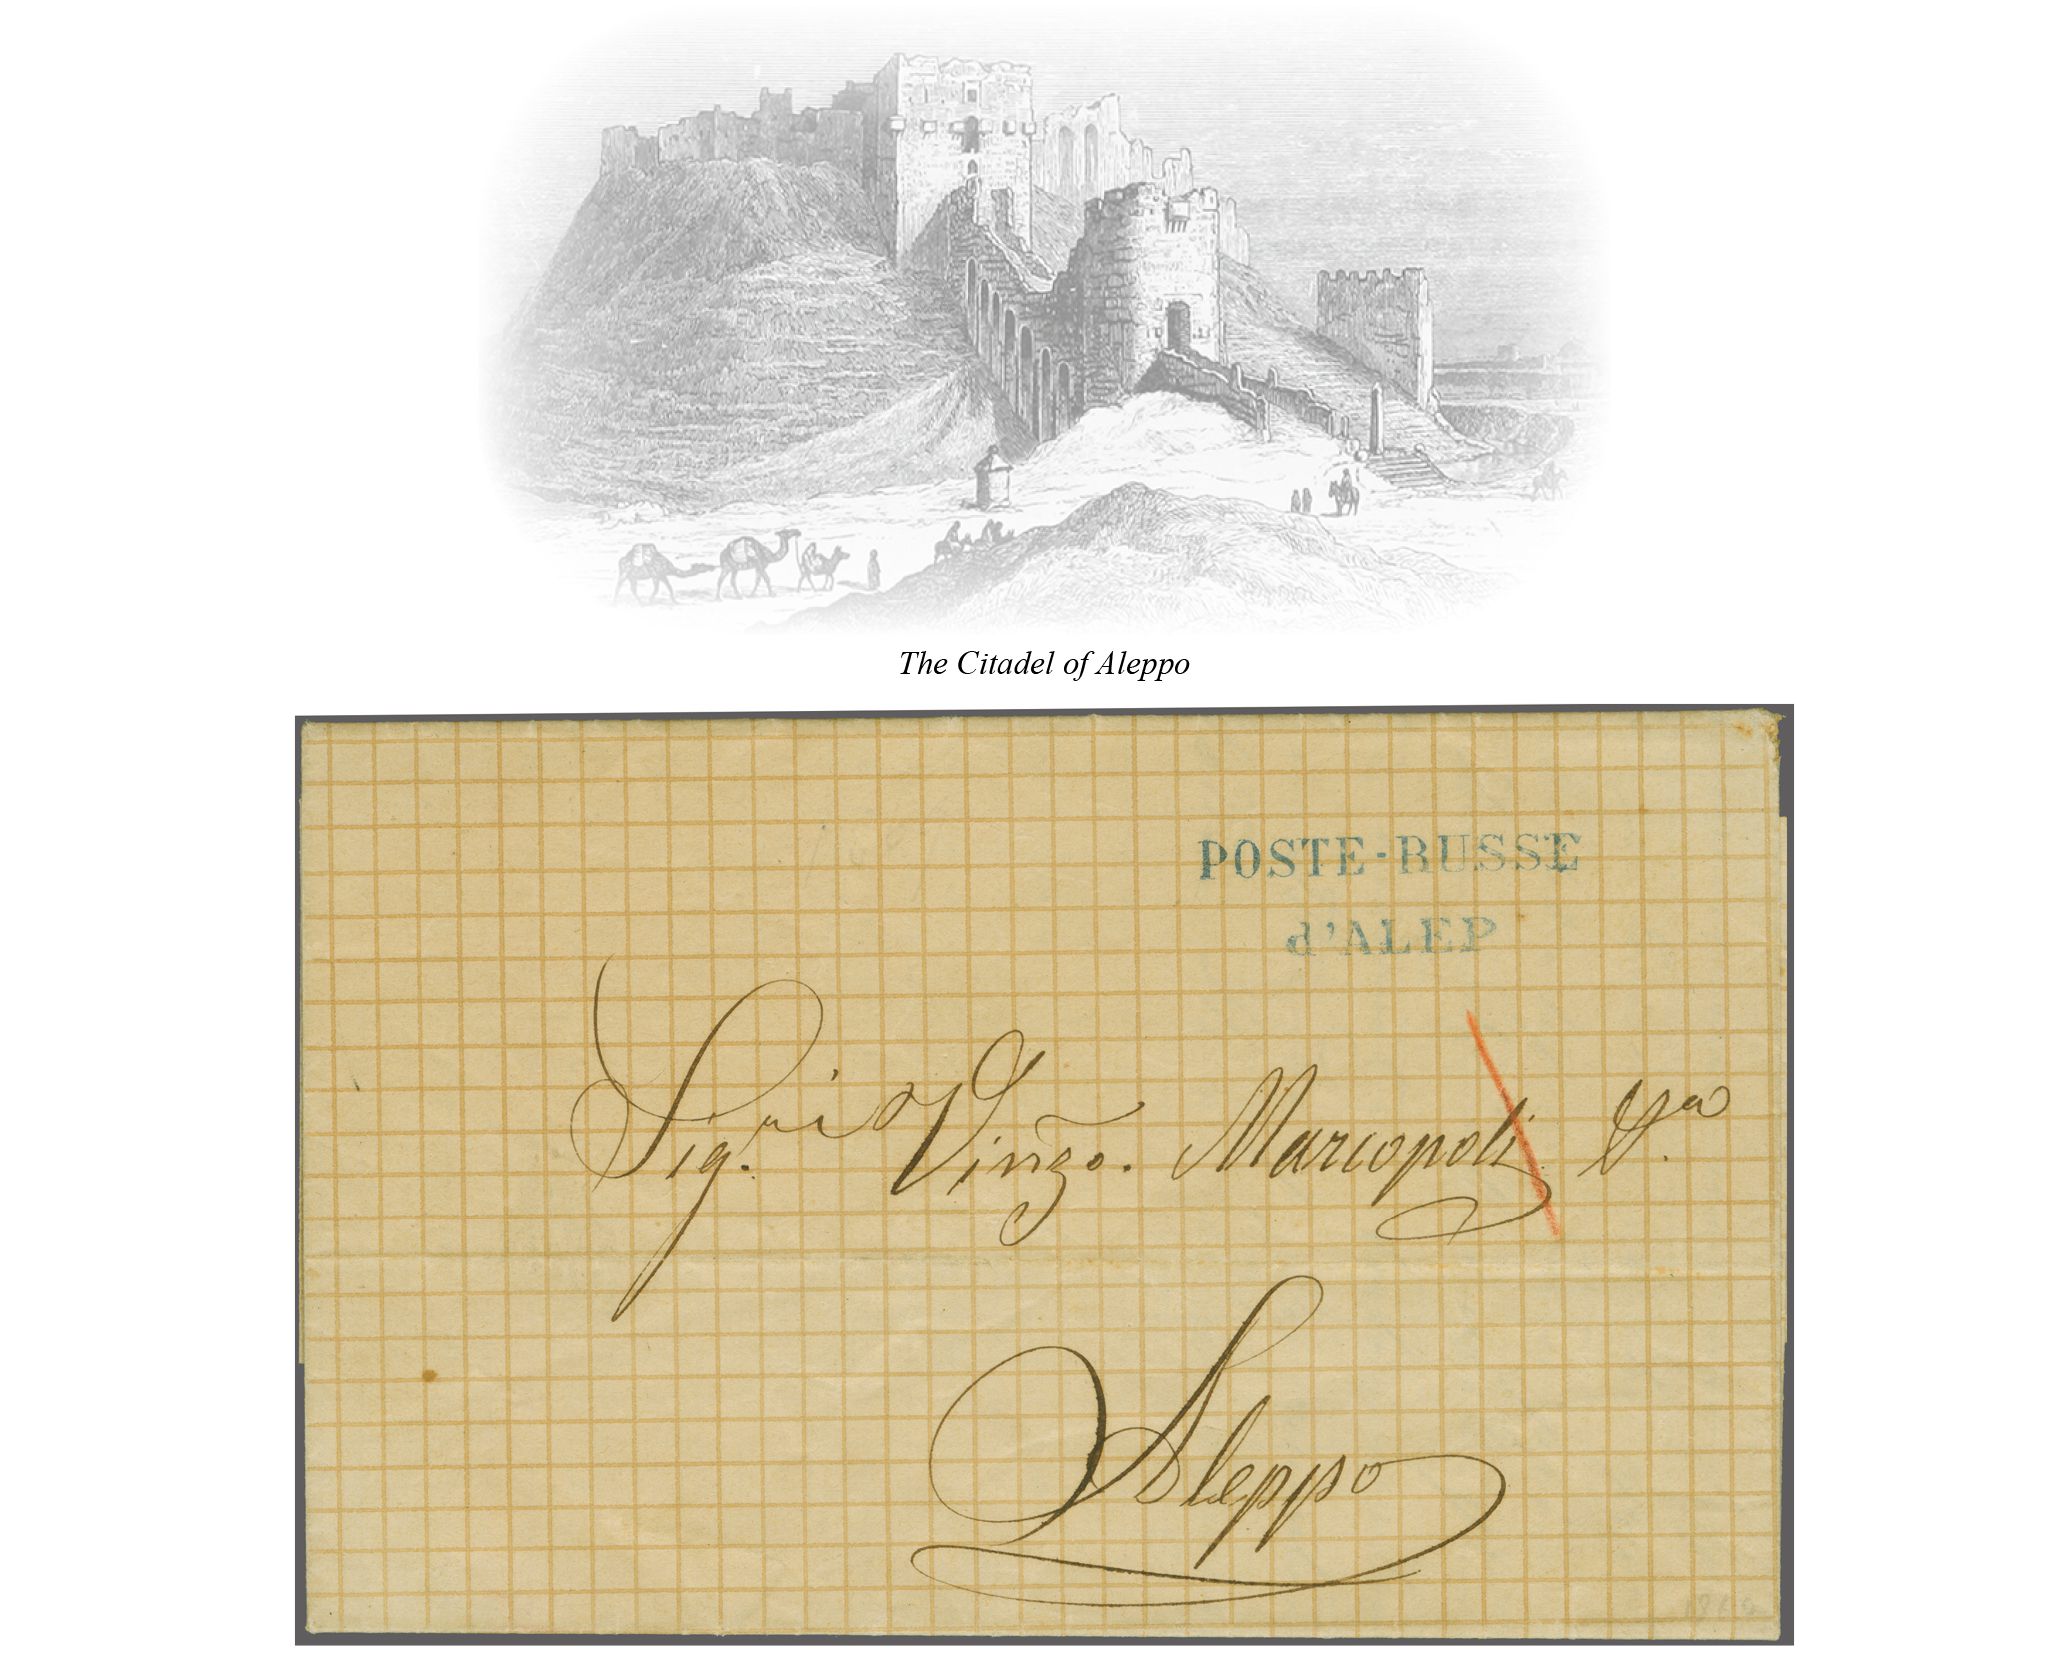 The Citadel of Aleppo
POSTE-RUSSE
d'ALEP
Sig.ri Vinzo. Marcopoli
Aleppo